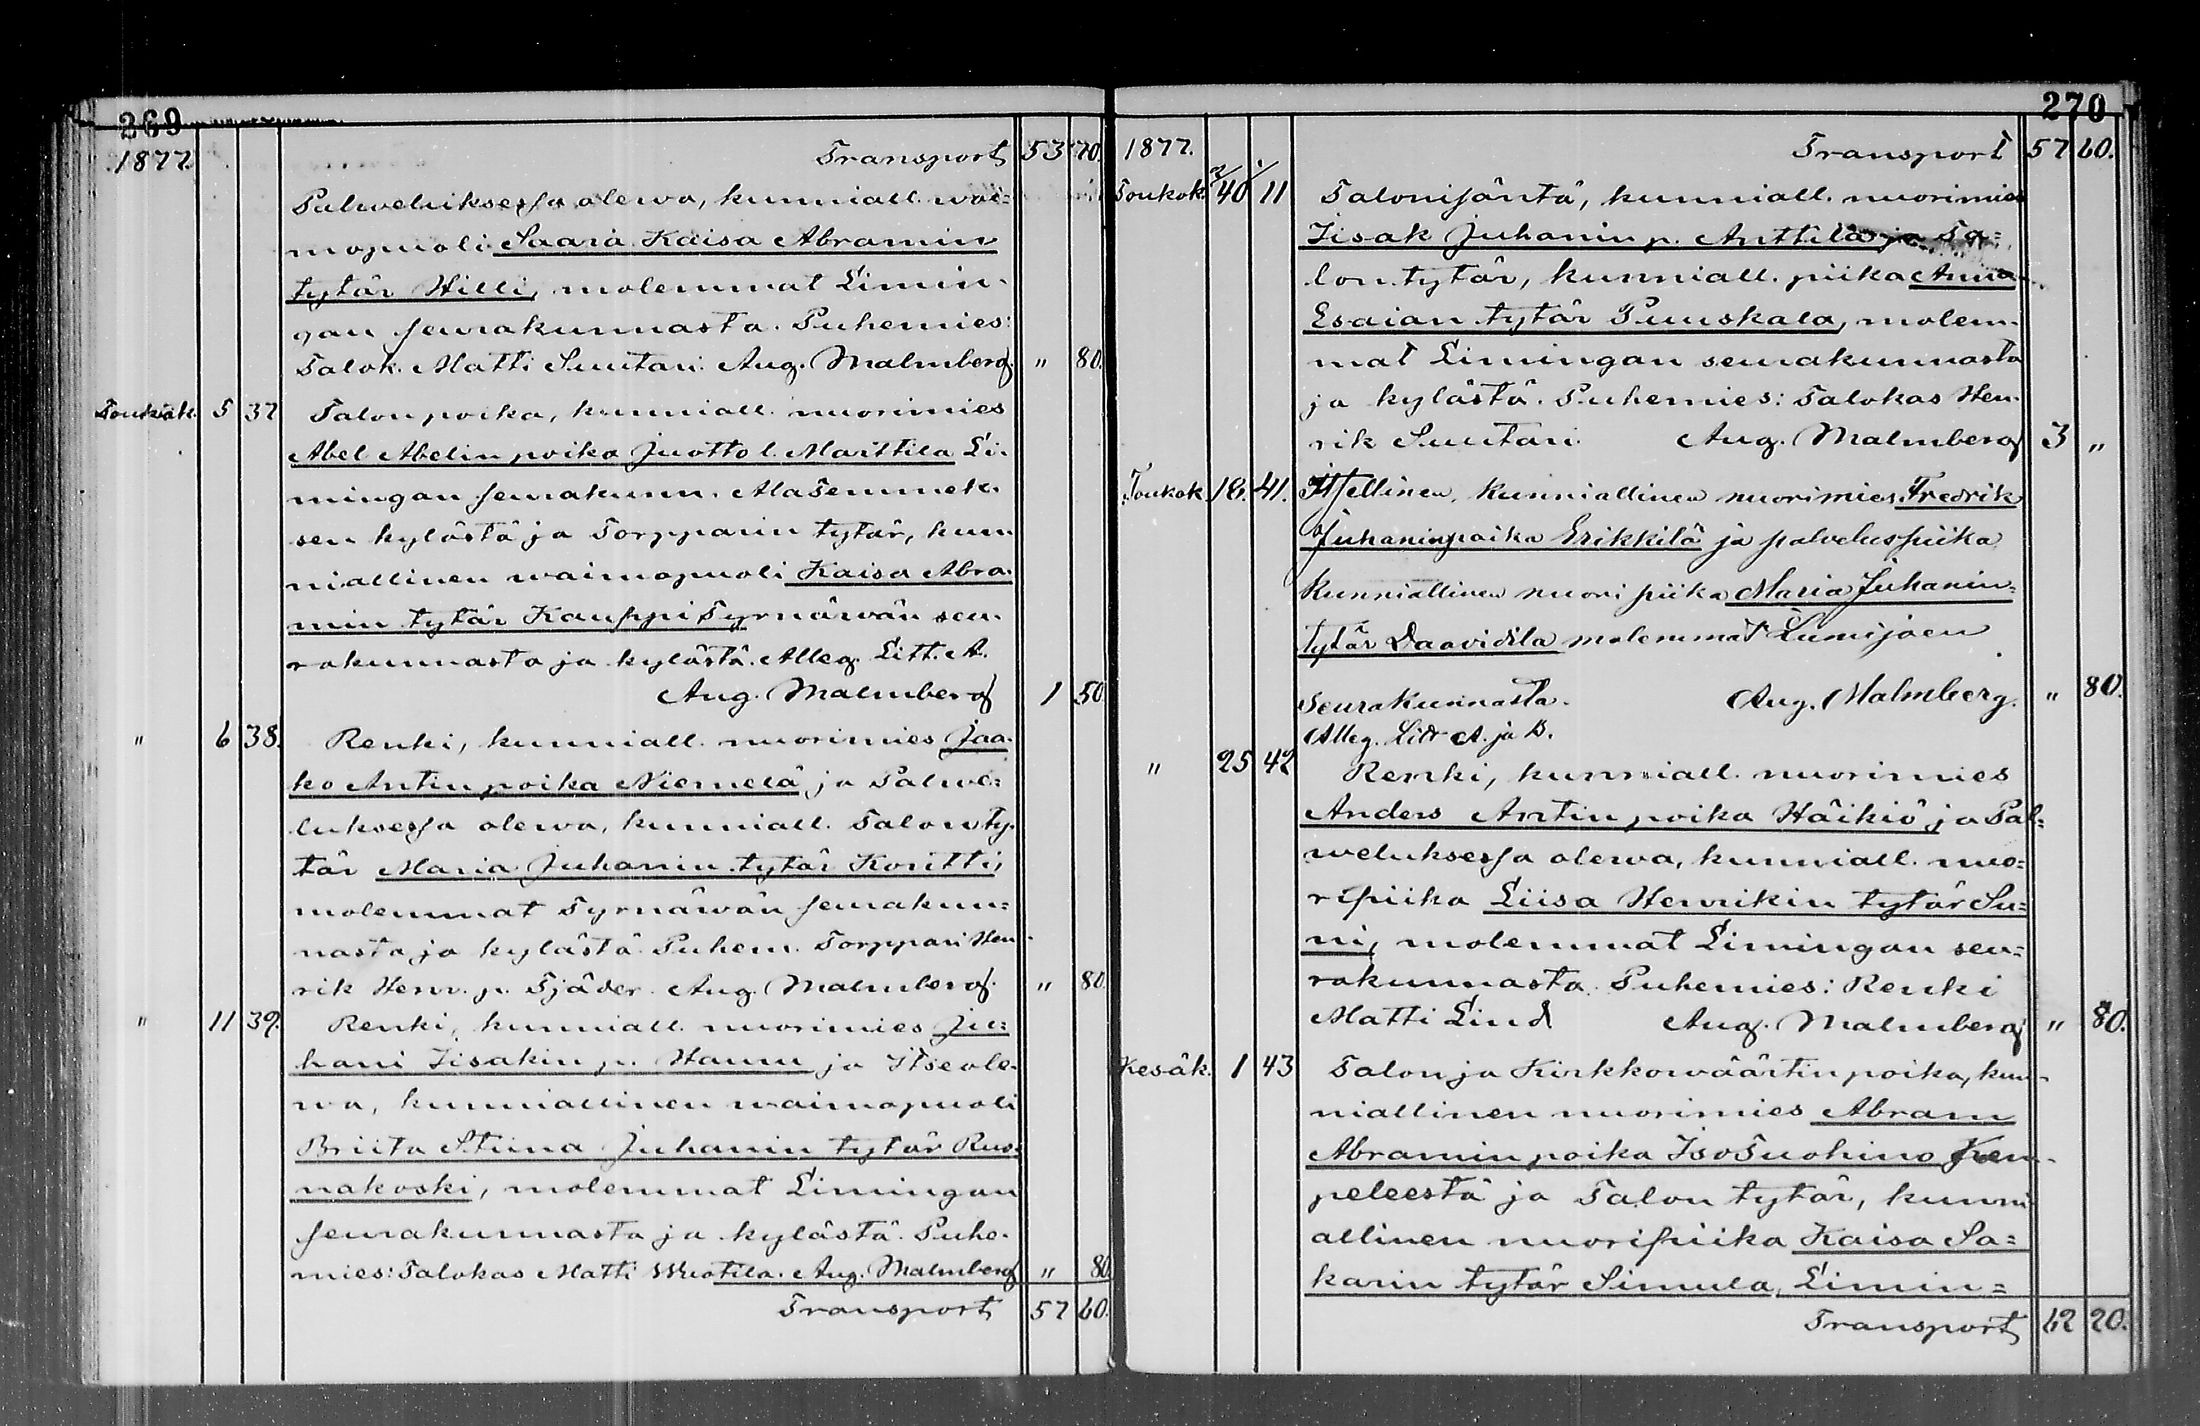 269
1877. Transport 53 70.
Palweluksessa olewa, kunniall. wai=
mopuoli Saara Kaisa Abramin
tytär Hilli, molemmat Limin-
gan seurakunnasta. Puhemies:
Talok. Matti Suutari. Aug. Malmberg. " 80.
Toukok. 5 37 Talon poika, kunniall. nuorimies
Abel Abelin poika Juotto l. Marttila Li-
mingan seurakunn. Alatemmek-
sen kylästä ja Torpparin tytär, kun-
niallinen waimopuoli Kaisa Abra-
min tytär Kauppi Tyrnäwän seu-
rakunnasta ja kylästä. Alleg. Litt. A.
Aug. Malmberg 1 50
" 6 38. Renki, kunniall. nuorimies Jaa-
ko Antin poika Niemelä ja Palwe=
luksessa olewa, kunniall. Talon ty-
tär Maria Juhanin tytär Koritti,
molemmat Tyrnäwän seurakun=
nasta ja kylästä. Puhem. Torppari Hen-
rik Henr. p. Tjäder. Aug. Malmberg. " 80.
" 11 39. Renki, kunniall. nuorimies Ju=
hani Iisakin p. Hannu ja Itseole-
wa, kunniallinen waimopuoli
Briita Stiina Juhanin tytär Ruo=
nakoski, molemmat Limingan
seurakunnasta ja kylästä. Puhe-
mies: Talokas Matti Wuotila. Aug. Malmberg " 80
Transport 57 60.
270
1877. Transport 57 60.
Toukok. 40 11 Talonisäntä, kunniall. nuorimies
Iisak Juhanin p. Anttila ja Ta=
lon tytär, kunniall. piika Anna
Esaian tytär Puuskala, molem-
mat Limingan seurakunnasta
ja kylästä. Puhemies: Talokas Hen-
rik Suutari. Aug. Malmberg 3 "
Toukok. 18. 41. Itsellinen, Kunniallinen nuorimies Fredrik
Juhaninpoika Erikkilä ja palveluspiika
Kunniallinen nuori piika Maria Juhanin=
tytär Daavidila molemmat Lumijoen
Seurakunnasta. Aug. Malmberg. " 80.
Alleg. Litt A. ja B.
" 25 42 Renki, kunniall. nuorimies
Anders Antin poika Häikiö ja Pal=
weluksessa olewa, kunniall. nuo=
ripiika Liisa Henrikin tytär Su=
ni, molemmat Limingan seu=
rakunnasta. Puhemies: Renki
Matti Lind Aug. Malmberg " 80.
Kesäk. 1 43 Talon ja Kirkkowäärtin poika, kun-
niallinen nuorimies Abram
Abramin poika IsoTuohino Kem-
peleestä ja Talon tytär, kunni
allinen nuoripiika Kaisa Sa=
karin tytär Simula, Limin=
Transport 62 20.